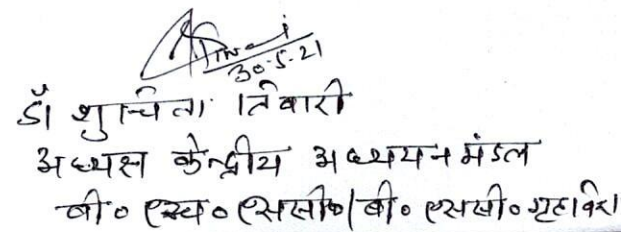 Tiwari
30-5-21
डॉ शुचिता तिवारी
अध्यक्ष केन्द्रीय अध्ययन मंडल
बी० एच० एससी०/बी० एससी० गृहवि